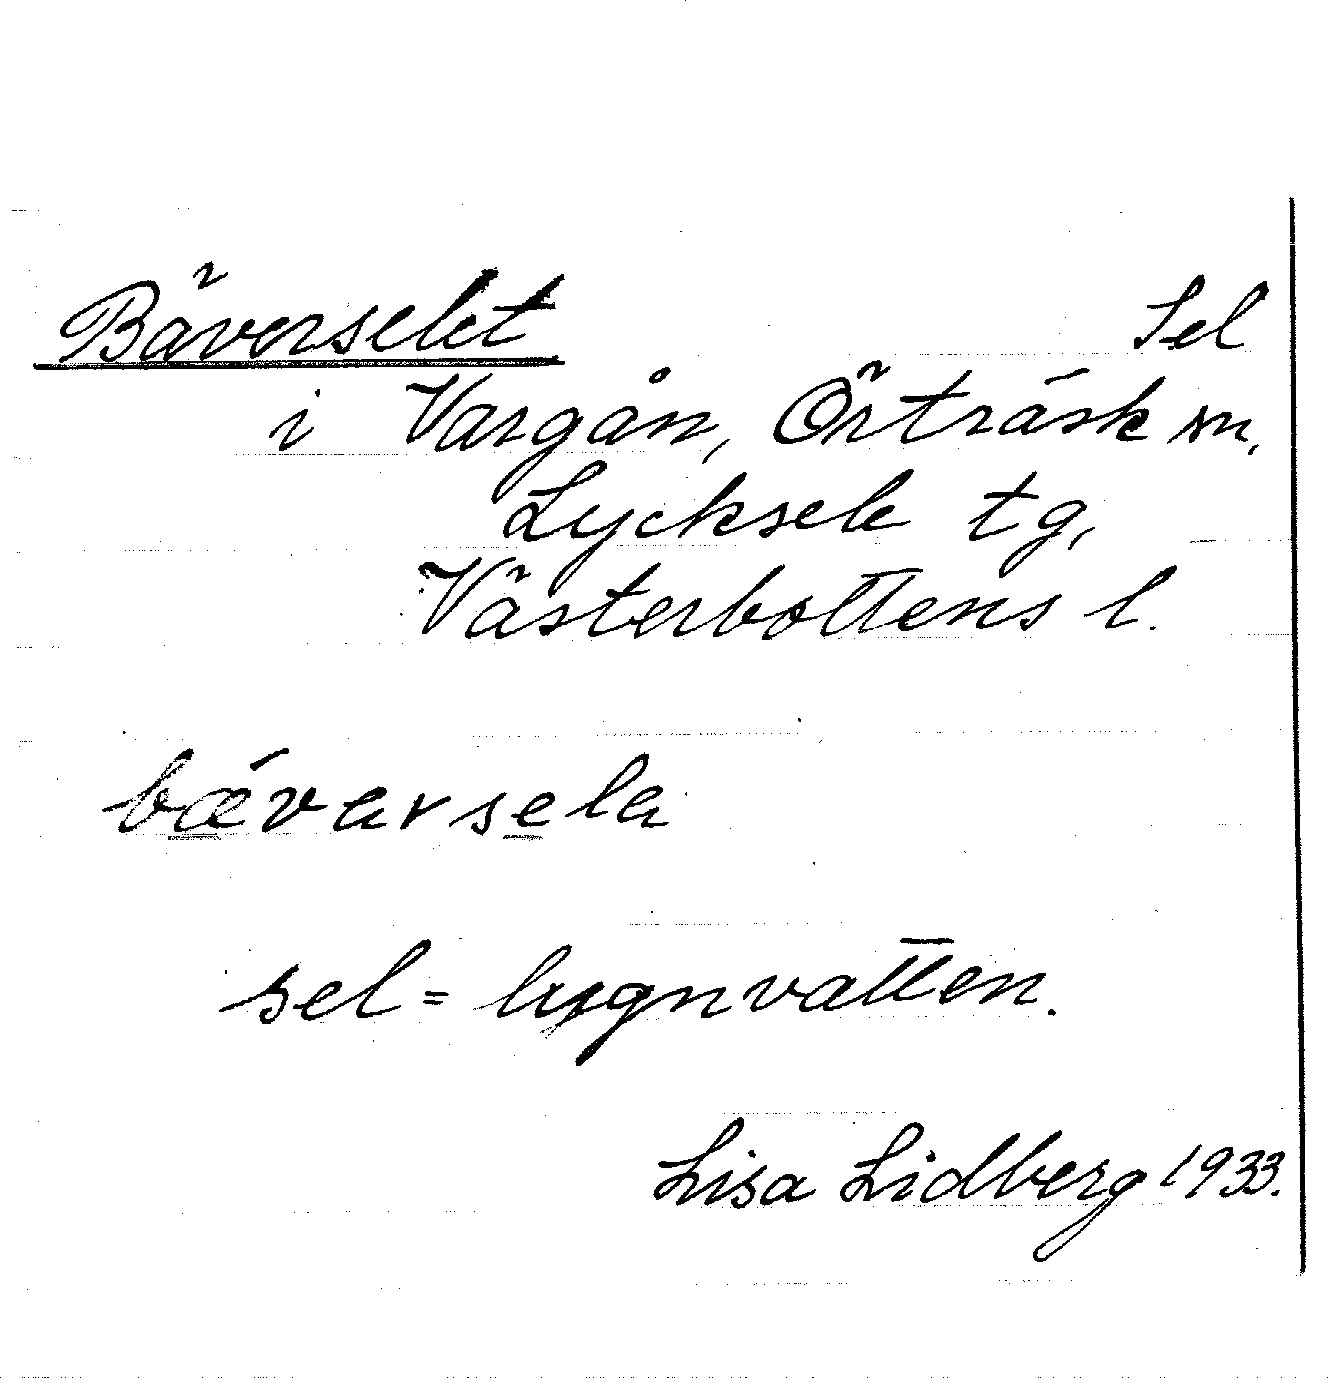 Bäverselet Sel
i Vargån, Örträsk sn,
Lycksele tg,
Västerbottens l.
bǽvarsela
sel = lugnvatten.
Lisa Lidberg 1933.